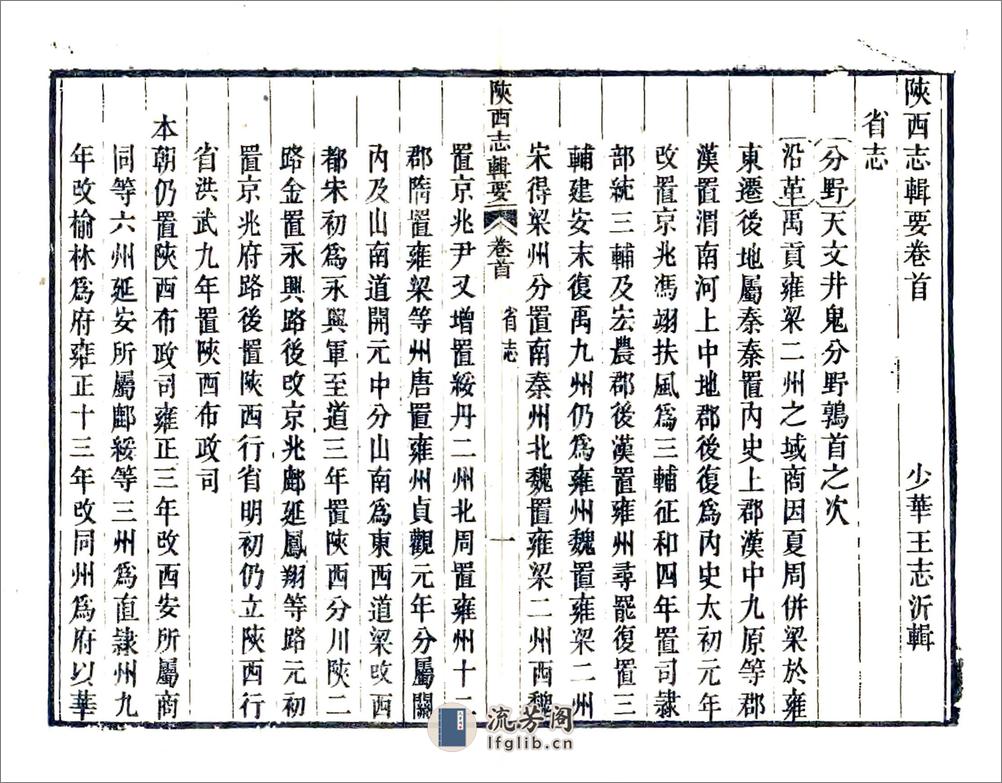 陝西志輯要卷首 少華王志沂輯
省志
分野天文井鬼分野鶉首之次
沿革禹貢雍梁二州之域商因夏周併梁於雍
東遷後地屬秦秦置內史上郡漢中九原等郡
漢置渭南河上中地郡後復爲內史太初元年
改置京兆馮翊扶風爲三輔征和四年置司隸
部統三輔及宏農郡後漢置雍州尋罷復置三
輔建安末復禹九州仍爲雍州魏置雍梁二州
宋得梁州分置南秦州北魏置雍梁二州西魏
陝西志輯要 卷首 省志 一
置京兆尹又增置綏丹二州北周置雍州十二
郡隋置雍梁等州唐置雍州貞觀元年分屬關
內及山南道開元中分山南爲東西道梁改西
都宋初爲永興軍至道三年置陝西分川陝二
路金置永興路後改京兆鄜延鳳翔等路元初
置京兆府路後置陝西行省明初仍立陝西行
省洪武九年置陝西布政司
本朝仍置陝西布政司雍正三年改西安所屬商
同等六州延安所屬鄜綏等三州爲直隸州九
年改榆林爲府雍正十三年改同州爲府以華
流芳閣
lfglib.cn